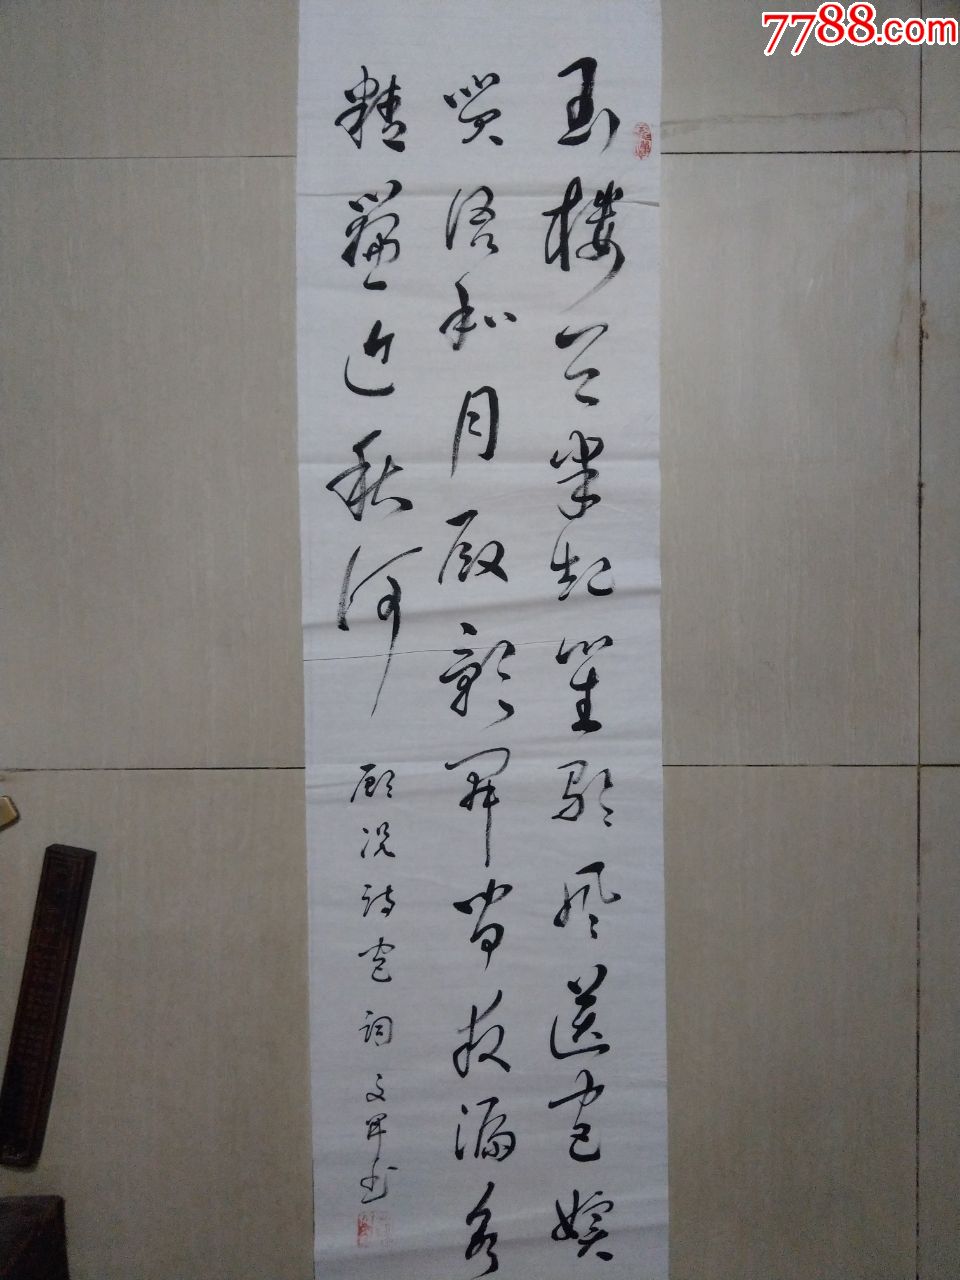 7788.com
玉楼天半起笙歌风送宫嫔
笑语和月殿影开闻夜漏水
精簾近秋河
顾况诗宫词 文军书